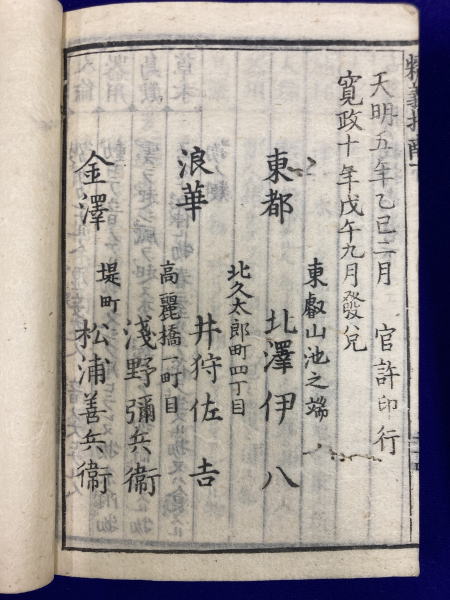 天明五年乙巳二月　官許印行
寛政十年戊午九月發兌
東叡山池之端
東都　北澤伊八
北久太郎町四丁目
浪華　井狩佐吉
高麗橋一町目
淺野彌兵衞
堤町
金澤　松浦善兵衞